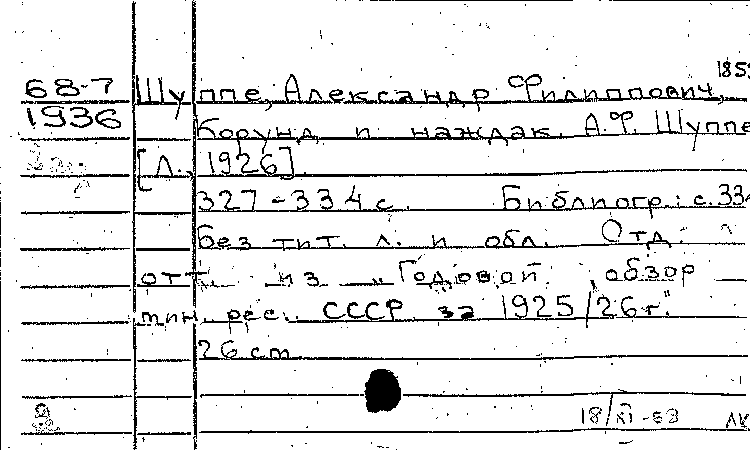 185
68-7 Шуппе, Александр Филиппович,
1936 Корунд и наждак. А.Ф. Шуппе
[Л., 1926].
327-334 с. Библиогр.: с. 334
Без тит. л. и обл. Отд.
отт. из „Годовой обзор
мин. рес. СССР за 1925/26 г."
26 cm
18/XI-68 ЛК